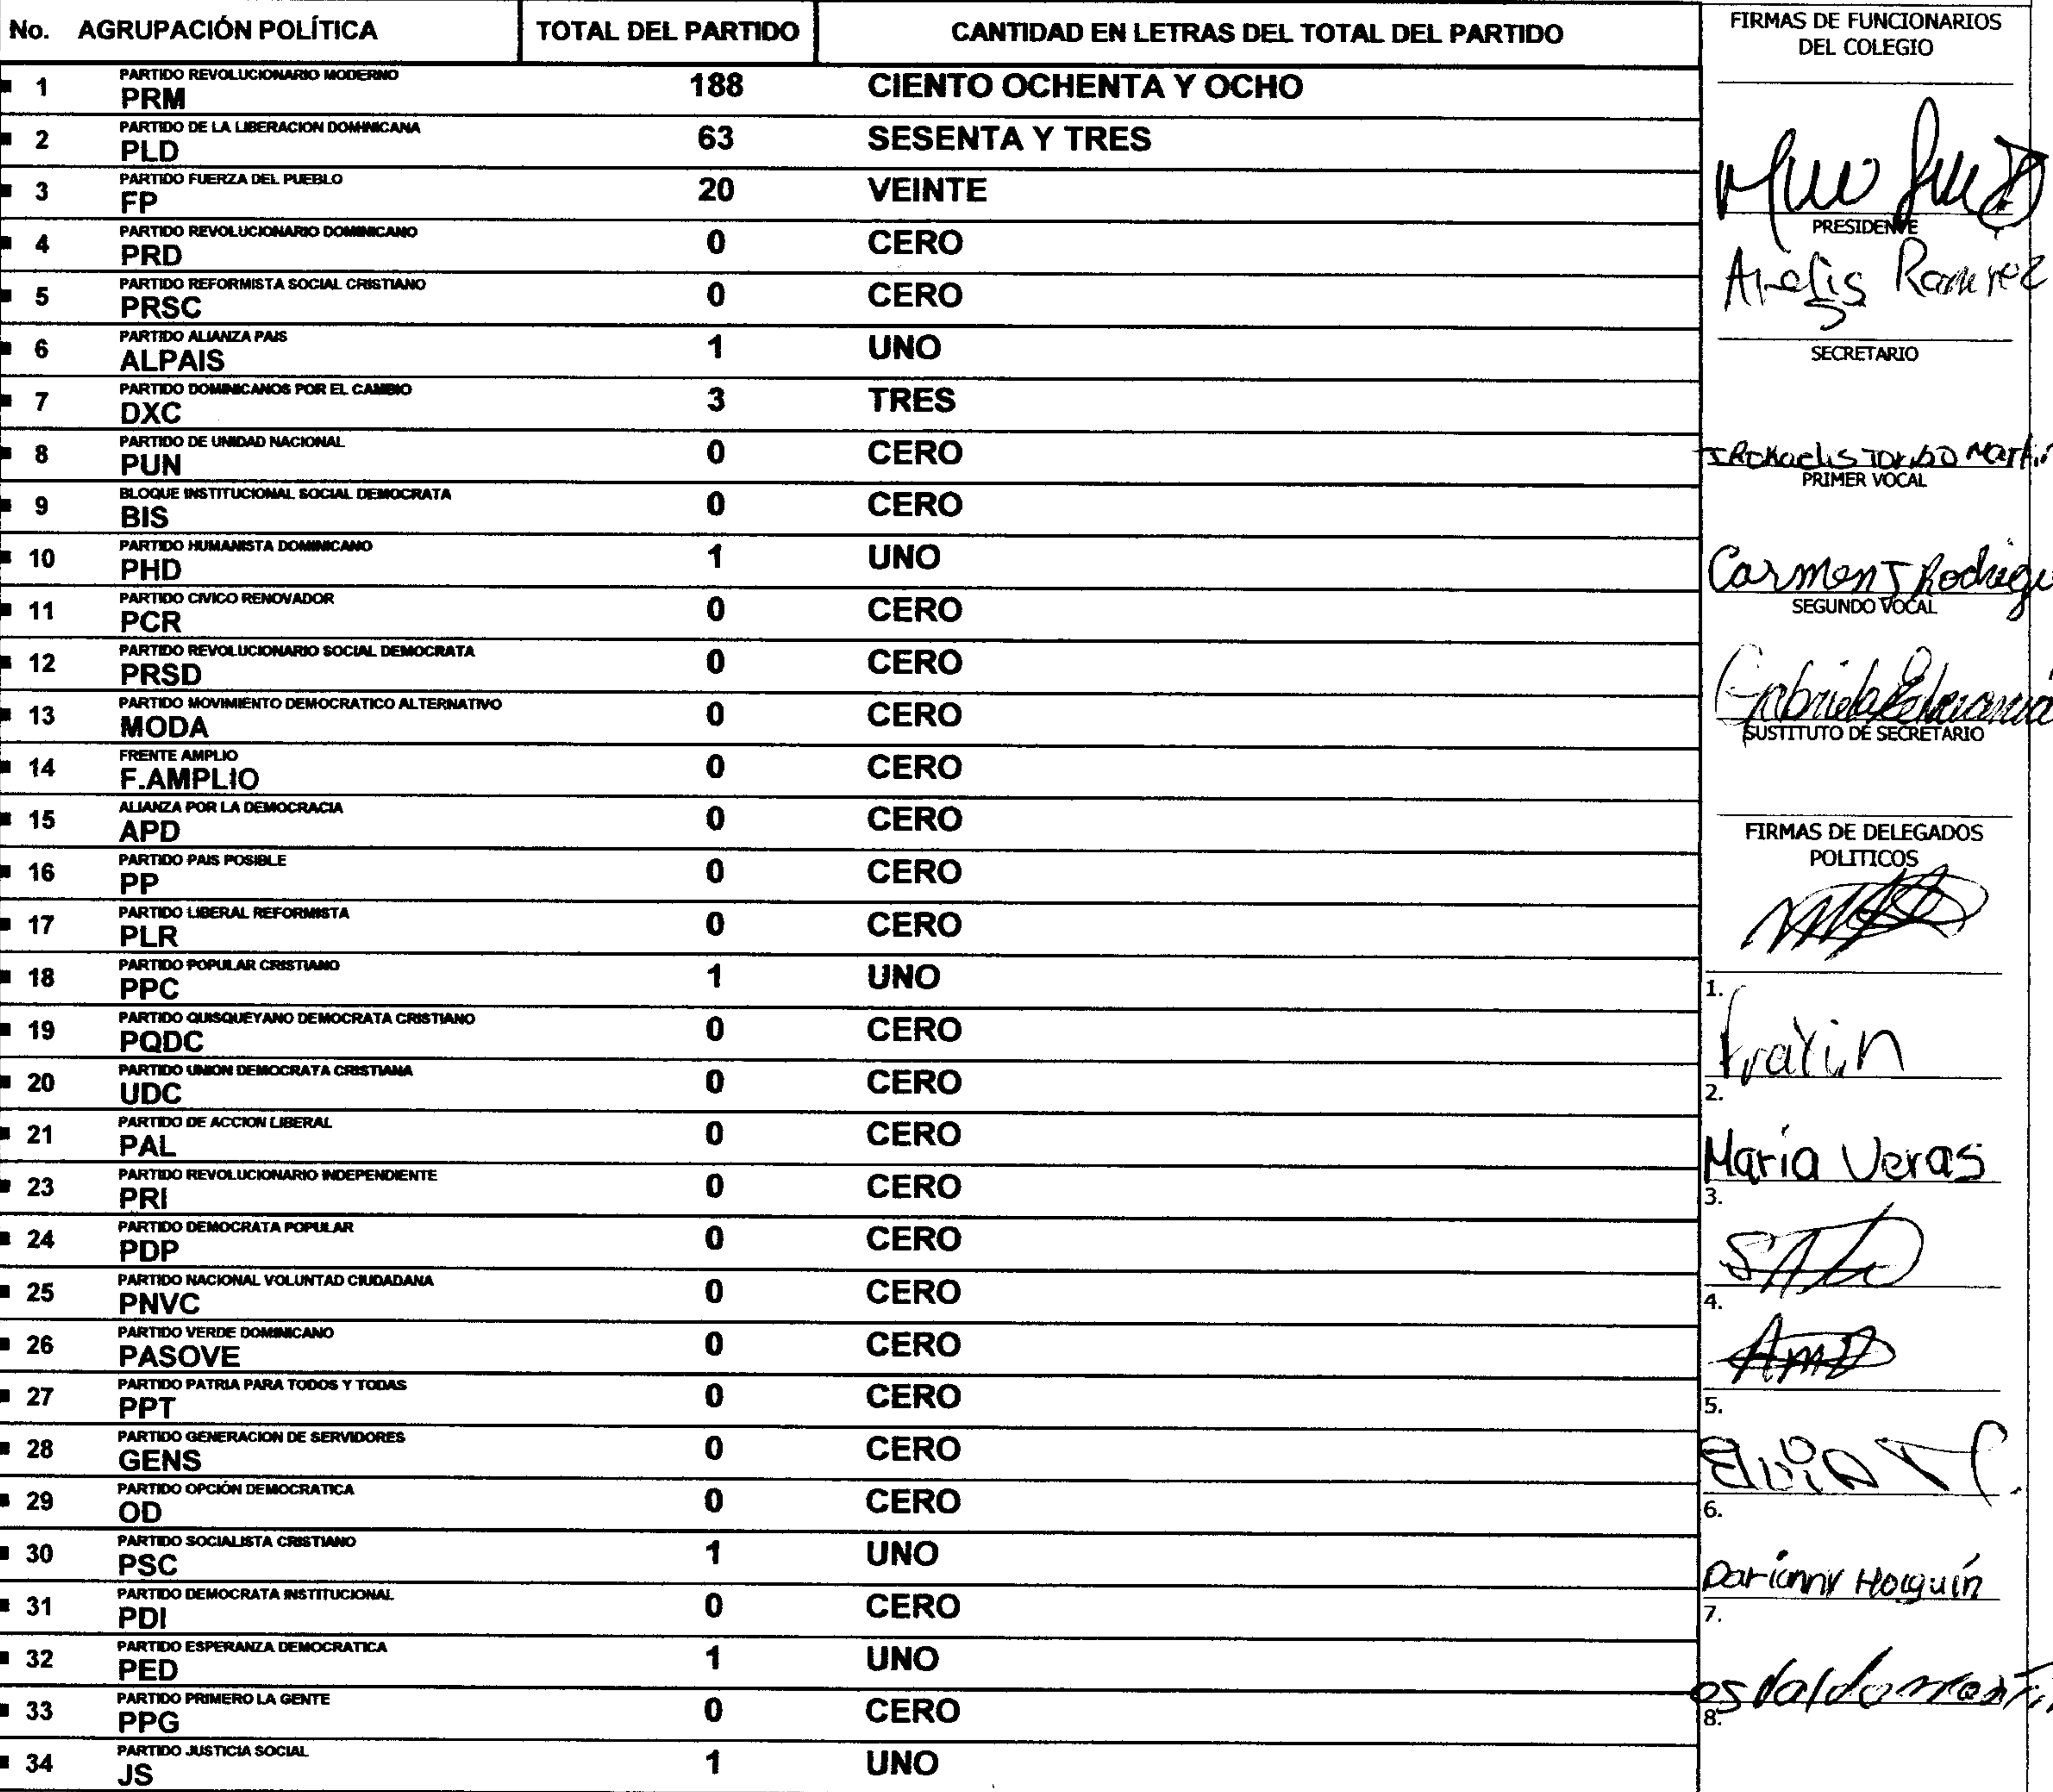 No. AGRUPACIÓN POLÍTICA TOTAL DEL PARTIDO CANTIDAD EN LETRAS DEL TOTAL DEL PARTIDO
PARTIDO REVOLUCIONARIO MODERNO
1 PRM 188 CIENTO OCHENTA Y OCHO
PARTIDO DE LA LIBERACION DOMINICANA
2 PLD 63 SESENTA Y TRES
PARTIDO FUERZA DEL PUEBLO
3 FP 20 VEINTE
PARTIDO REVOLUCIONARIO DOMINICANO
4 PRD 0 CERO
PARTIDO REFORMISTA SOCIAL CRISTIANO
5 PRSC 0 CERO
PARTIDO ALIANZA PAIS
6 ALPAIS 1 UNO
PARTIDO DOMINICANOS POR EL CAMBIO
7 DXC 3 TRES
PARTIDO DE UNIDAD NACIONAL
8 PUN 0 CERO
BLOQUE INSTITUCIONAL SOCIAL DEMOCRATA
9 BIS 0 CERO
PARTIDO HUMANISTA DOMINICANO
10 PHD 1 UNO
PARTIDO CIVICO RENOVADOR
11 PCR 0 CERO
PARTIDO REVOLUCIONARIO SOCIAL DEMOCRATA
12 PRSD 0 CERO
PARTIDO MOVIMIENTO DEMOCRATICO ALTERNATIVO
13 MODA 0 CERO
FRENTE AMPLIO
14 F.AMPLIO 0 CERO
ALIANZA POR LA DEMOCRACIA
15 APD 0 CERO
PARTIDO PAIS POSIBLE
16 PP 0 CERO
PARTIDO LIBERAL REFORMISTA
17 PLR 0 CERO
PARTIDO POPULAR CRISTIANO
18 PPC 1 UNO
PARTIDO QUISQUEYANO DEMOCRATA CRISTIANO
19 PQDC 0 CERO
PARTIDO UNION DEMOCRATA CRISTIANA
20 UDC 0 CERO
PARTIDO DE ACCION LIBERAL
21 PAL 0 CERO
PARTIDO REVOLUCIONARIO INDEPENDIENTE
23 PRI 0 CERO
PARTIDO DEMOCRATA POPULAR
24 PDP 0 CERO
PARTIDO NACIONAL VOLUNTAD CIUDADANA
25 PNVC 0 CERO
PARTIDO VERDE DOMINICANO
26 PASOVE 0 CERO
PARTIDO PATRIA PARA TODOS Y TODAS
27 PPT 0 CERO
PARTIDO GENERACION DE SERVIDORES
28 GENS 0 CERO
PARTIDO OPCIÓN DEMOCRATICA
29 OD 0 CERO
PARTIDO SOCIALISTA CRISTIANO
30 PSC 1 UNO
PARTIDO DEMOCRATA INSTITUCIONAL
31 PDI 0 CERO
PARTIDO ESPERANZA DEMOCRATICA
32 PED 1 UNO
PARTIDO PRIMERO LA GENTE
33 PPG 0 CERO
PARTIDO JUSTICIA SOCIAL
34 JS 1 UNO
FIRMAS DE FUNCIONARIOS
DEL COLEGIO
PRESIDENTE
Arelis Ramirez
SECRETARIO
PRIMER VOCAL
Carmen J Rodrigu
SEGUNDO VOCAL
Gabriela
SUSTITUTO DE SECRETARIO
FIRMAS DE DELEGADOS
POLITICOS
1.
2.
María Veras
3.
4.
5.
6.
Darianny Holguín
7.
8.